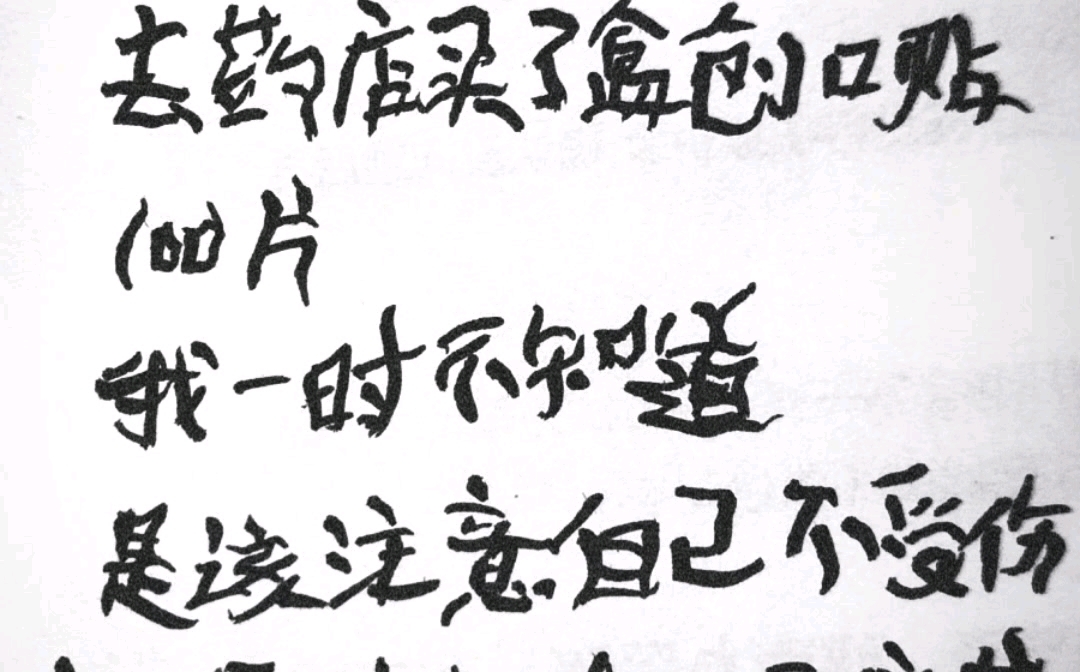 去药店买了盒创口贴
100片
我一时不知道
是该注意自己不受伤